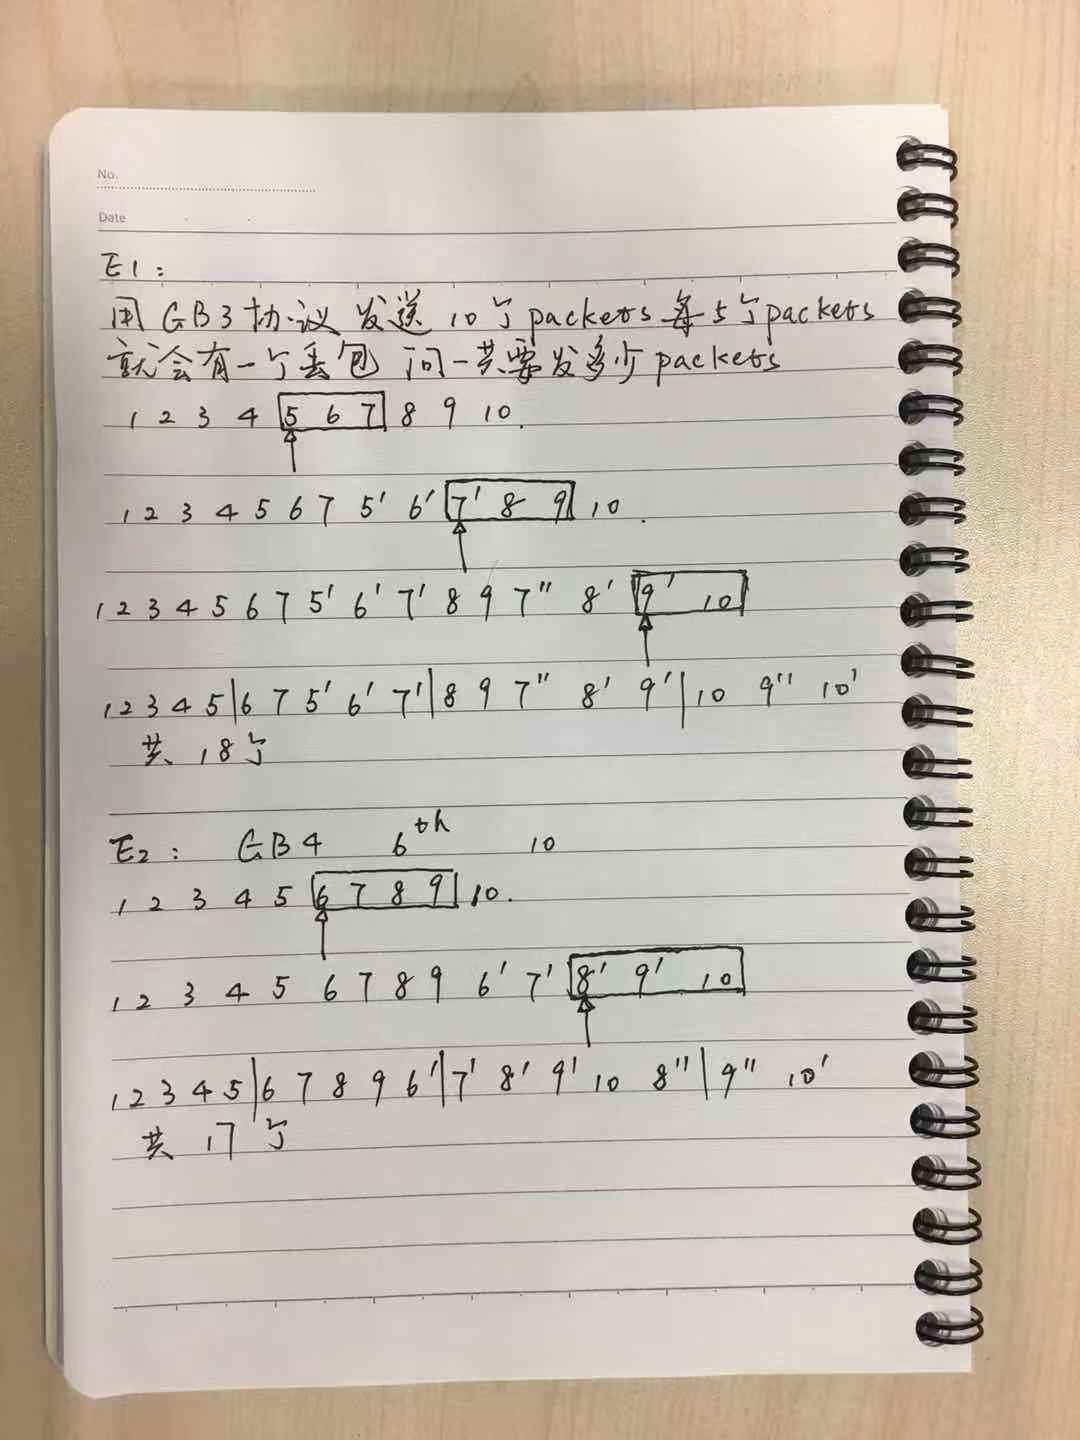 No.
Date
E1:
用 GB3 协议 发送 10个 packets 每5个 packets
就会有一个丢包 问一共要发多少 packets
1 2 3 4 5 6 7 8 9 10.
1 2 3 4 5 6 7 5' 6' 7' 8 9 10.
1 2 3 4 5 6 7 5' 6' 7' 8 9 7" 8' 9' 10
1 2 3 4 5|6 7 5' 6' 7'|8 9 7" 8' 9'|10 9" 10'
共 18个
E2: GB4 6th 10
1 2 3 4 5 6 7 8 9 10.
1 2 3 4 5 6 7 8 9 6' 7' 8' 9' 10
1 2 3 4 5|6 7 8 9 6'|7' 8' 9' 10 8"|9" 10'
共 17个